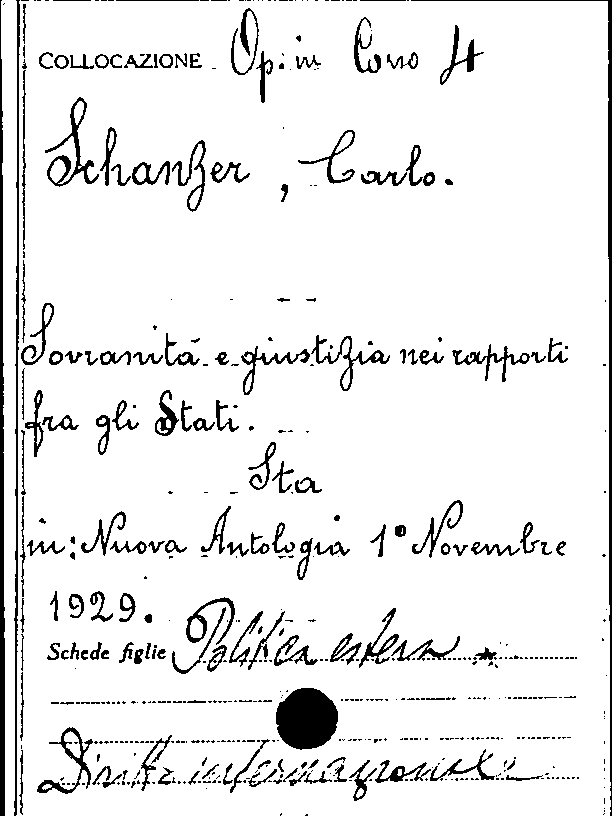 COLLOCAZIONE Op. in Corso 4
Schanzer, Carlo.
Sovranità e giustizia nei rapporti
fra gli Stati.
Sta
in: Nuova Antologia 1° Novembre
1929.
Schede figlie Politica estera *
Diritto internazionale